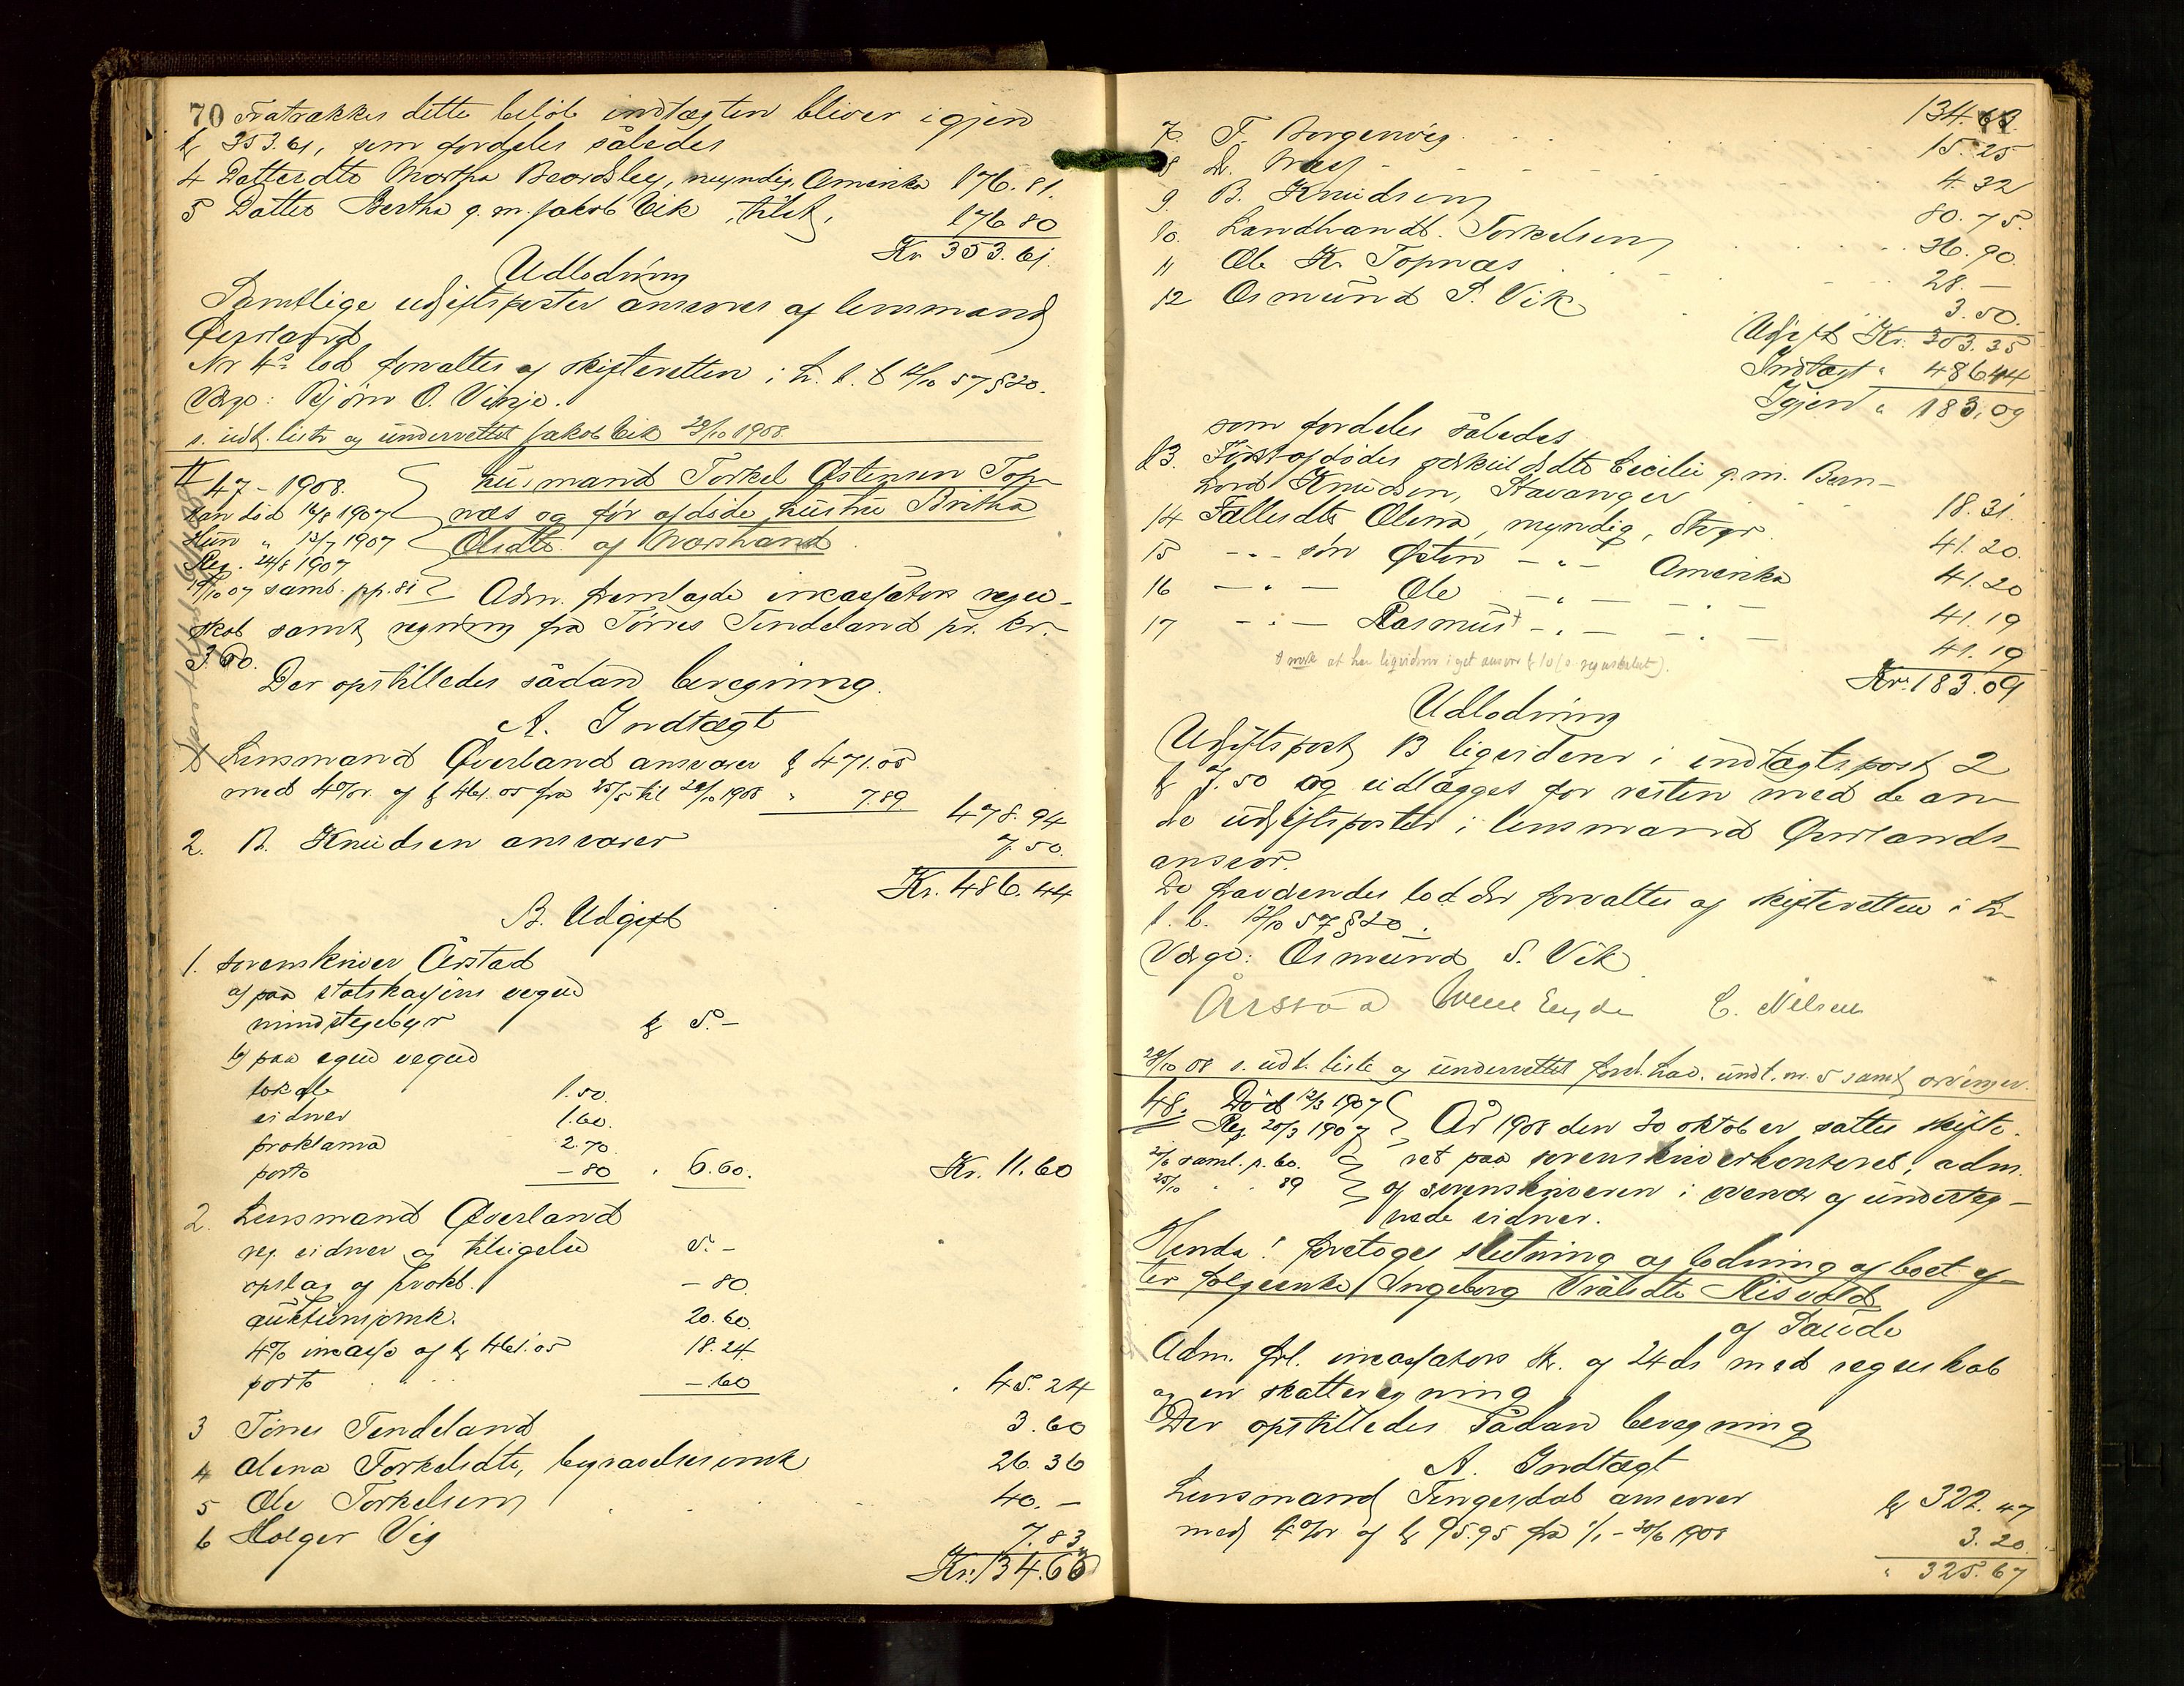 70 Fratrækkes dette beløb indtægten bliver igjen
kr 353.61, som fordeles således
4 Datterdtr Martha Beardsley, myndig, Amerika 176.81.
5 Datter Bertha g. m. Jakob Eik, tilst, 176 80
Kr 353.61.
Udlodning
Samtlige udgiftsposter ansvares af lensmand
Øverland
Nr 4s lod forvaltes af skifteretten i h. t. l 12/10 57 § 20.
Værge: Bjørn O. Vinje.
s. udt. liste og underrettet Jakob Eik 29/10 1908.
47 - 1908.
Husmand Torkel Østensen Top-
han død 16/8 1907
næs og før afdøde hustru Britha
Hun " 13/7 1907
Olsdtr af Marshand.
Reg. 24/8 1907
19/10 07 saml. pp. 81 Adm. fremlagde incassators regn-
skab samt regning fra Tørres Tendeland pr. kr.
3.60.
Der opstilledes sådan beregning.
A. Indtægt
1 Lensmand Øverland ansvarer kr 471.05
med 4% r. af kr 461.05 fra 25/5 til 29/10 1908 " 7.89
478.94
2. B. Knudsen ansvarer 7.50.
Kr. 486.44
B. Udgift
1. sorenskriver Årstad
a) paa statskassens vegne
mindstegebyr kr 5.-
b) paa egne vegne
lokale 1.50.
vidner 1.60.
proklama 2.70.
porto - 80 " 6.60. Kr. 11.60
2. Lensmand Øverland
reg. vidner og tilsigelse 5.-
opslag af prokl. - 80.
auktionsomk. 20.60.
4% incasso af kr 461.05 18.24.
porto - 60 " 45.24
3 Tørres Tendeland 3.60
4 Olena Torkelsdtr, begravelsesomk 26.36
5 Ole Torkelsen 40.-
6 Holger Vig 7.83
Kr. 134.63
134.63.
7. F. Borgenvig 15.25
8 D. Næss 4.32
9. B. Knudsen 80.75.
10. Landhandl. Torkelsen 36.90.
11 Ole K. Topnæs 28.-
12 Osmund S. Vik 3.50.
Udgift Kr. 303.35
Indtægt " 486.44
Igjen " 183.09
som fordeles således
13. Først afdødes Cecilie g. m. Bern-
hard Knudsen, Stavanger 18.31.
14 Fællesdtr Olena, myndig, Stvgr. 41.20.
15 - " - søn Østen - " - Amerika 41.20
16 - " - Ole - " - - " - 41.19
17 - " - Rasmus - " - - " - 41.19
Kr. 183.09
Udlodning
Udgiftspost 13 ligviderer i indtægtspost 2
kr 7.50 og udlægges for resten med de an-
dre udgiftsposter i lensmand Øverlands-
ansvar.
De fraværendes lodder forvaltes af skifteretten i h.
t. l. 12/10 57 § 20.
Værge: Osmund S. Vik
Årstad C. Nilsen
29/10 08 s. udt. liste og underrettet ford. hav. undt. nr. 5 samt arvinger.
48. Død 12/3 1907
Reg. 20/3 1907 År 1908 den 30 oktober sattes skifte-
saml. p. 60. ret paa sorenskriverkontoret, adm.
25/10 " " 89 af sorenskriveren i overvær af underteg-
nede vidner.
Hvorda! foretoges slutning og lodning af boet ef-
ter følgeenke Ingeborg Risvold
af Saude
Adm. frl. incassators skr. af 24 ds med regnskab
og en skatteregning
Der opstilledes sådan beregning
A. Indtægt
Lensmand Tengesdal ansvarer kr 322.47
med 4% r af kr 95.95 fra 1/1 - 30/6 1908 3.20.
" 325.67